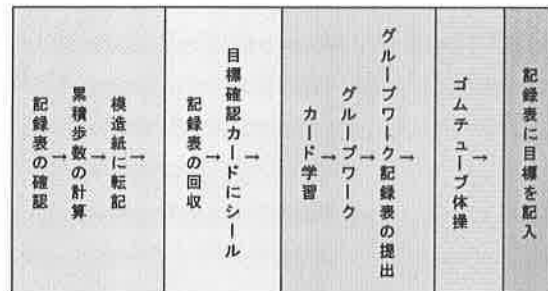 記録表の確認
→
累積歩数の計算
→
模造紙に転記
→
記録表の回収
→
目標確認カードにシール
→
カード学習
→
グループワーク
→
グループワーク記録表の提出
→
ゴムチューブ体操
→
記録表に目標を記入